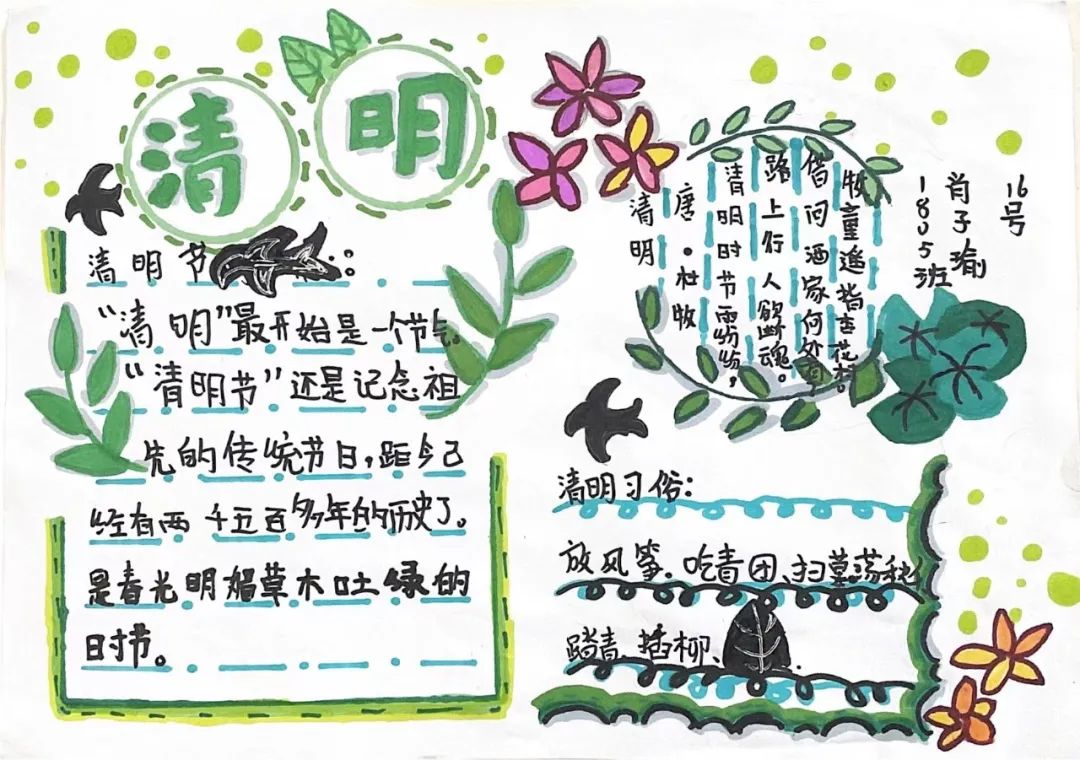 清明
清明节
：
“清明”最开始是一个节气。
“清明节”还是记念祖
先的传统节日,距今已
经有两千五百多年的历史了。
是春光明媚草木吐绿的
时节。
清明
唐·杜牧
清明时节雨纷纷,
路上行人欲断魂。
借问酒家何处有
牧童遥指杏花村。
1805班
肖子瑜
16号
清明习俗:
放风筝、吃青团、扫墓荡秋
踏青、插柳、